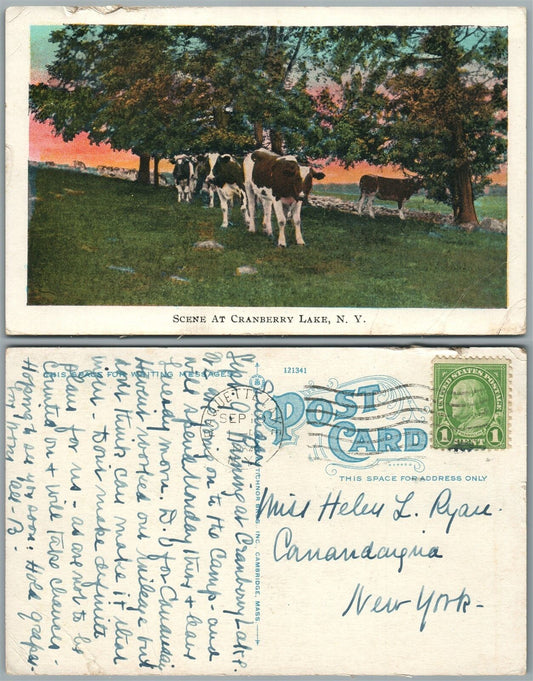 SCENE AT CRANBERRY LAKE, N. Y.
THIS SPACE FOR WRITING MESSAGES
121341
UETTE
SEP
UNITED STATES POSTAGE
FRANKLIN
1 CENT 1
POST CARD
THIS SPACE FOR ADDRESS ONLY
TICHNOR BROS. INC., CAMBRIDGE, MASS.
Miss Helen L. Ryan.
Canandaigua
New York.
at Cranberry Lake.
going on to the Camp - and
will spend Monday there & leave
Tuesday morn. D. J. for Canaday
worked out mileage but
don't think can make it that
way - Don't make definite
plans for us - as are not to be
Counted on & will take chances -
Hoping to see you soon. Hold grapes
for two. B.